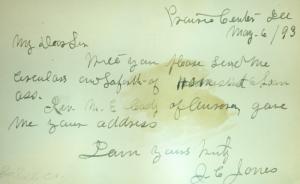 Prairie Center Ill
May 6/93
My Dear Sir
Will you please send me
Circulars and of Homestead Loan
ass.
Rev. M. E. of Aurora gave
me your address
I am yours truly
J. C. Jones